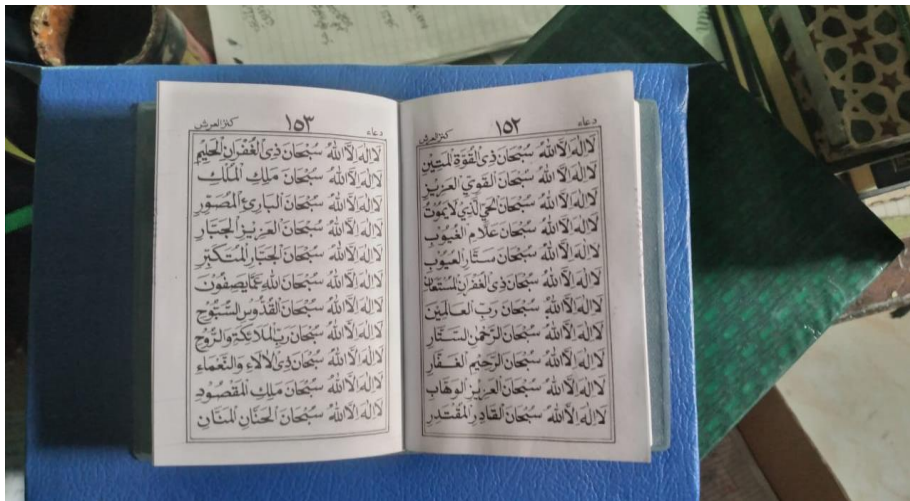 دعاء
١٥٢
كنز العرش
لَا اِلٰهَ اِلَّا اللّٰهُ سُبْحَانَ ذِي الْقُوَّةِ الْمَتِيْنِ
لَا اِلٰهَ اِلَّا اللّٰهُ سُبْحَانَ الْقَوِيِّ الْعَزِيْزِ
لَا اِلٰهَ اِلَّا اللّٰهُ سُبْحَانَ الْحَيِّ الَّذِي لَا يَمُوْتُ
لَا اِلٰهَ اِلَّا اللّٰهُ سُبْحَانَ عَلَّامِ الْغُيُوْبِ
لَا اِلٰهَ اِلَّا اللّٰهُ سُبْحَانَ سَتَّارِ الْعُيُوْبِ
لَا اِلٰهَ اِلَّا اللّٰهُ سُبْحَانَ ذِي الْغُفْرَانِ الْمُسْتَعَانِ
لَا اِلٰهَ اِلَّا اللّٰهُ سُبْحَانَ رَبِّ الْعَالَمِيْنَ
لَا اِلٰهَ اِلَّا اللّٰهُ سُبْحَانَ الرَّحْمٰنِ السَّتَّارِ
لَا اِلٰهَ اِلَّا اللّٰهُ سُبْحَانَ الرَّحِيْمِ الْغَفَّارِ
لَا اِلٰهَ اِلَّا اللّٰهُ سُبْحَانَ الْعَزِيْزِ الْوَهَّابِ
لَا اِلٰهَ اِلَّا اللّٰهُ سُبْحَانَ الْقَادِرِ الْمُقْتَدِرِ
دعاء
١٥٣
كنز العرش
لَا اِلٰهَ اِلَّا اللّٰهُ سُبْحَانَ ذِي الْغُفْرَانِ الْحَلِيْمِ
لَا اِلٰهَ اِلَّا اللّٰهُ سُبْحَانَ مَلِكِ الْمُلْكِ
لَا اِلٰهَ اِلَّا اللّٰهُ سُبْحَانَ الْبَارِئِ الْمُصَوِّرِ
لَا اِلٰهَ اِلَّا اللّٰهُ سُبْحَانَ الْعَزِيْزِ الْجَبَّارِ
لَا اِلٰهَ اِلَّا اللّٰهُ سُبْحَانَ الْجَبَّارِ الْمُتَكَبِّرِ
لَا اِلٰهَ اِلَّا اللّٰهُ سُبْحَانَ اللّٰهِ عَمَّا يَصِفُوْنَ
لَا اِلٰهَ اِلَّا اللّٰهُ سُبْحَانَ الْقُدُّوْسِ السُّبُّوْحِ
لَا اِلٰهَ اِلَّا اللّٰهُ سُبْحَانَ رَبِّ الْمَلَائِكَةِ وَالرُّوْحِ
لَا اِلٰهَ اِلَّا اللّٰهُ سُبْحَانَ ذِي الْاٰلَاءِ وَالنَّعْمَاءِ
لَا اِلٰهَ اِلَّا اللّٰهُ سُبْحَانَ مَلِكِ الْمَقْصُوْدِ
لَا اِلٰهَ اِلَّا اللّٰهُ سُبْحَانَ الْحَنَّانِ الْمَنَّانِ